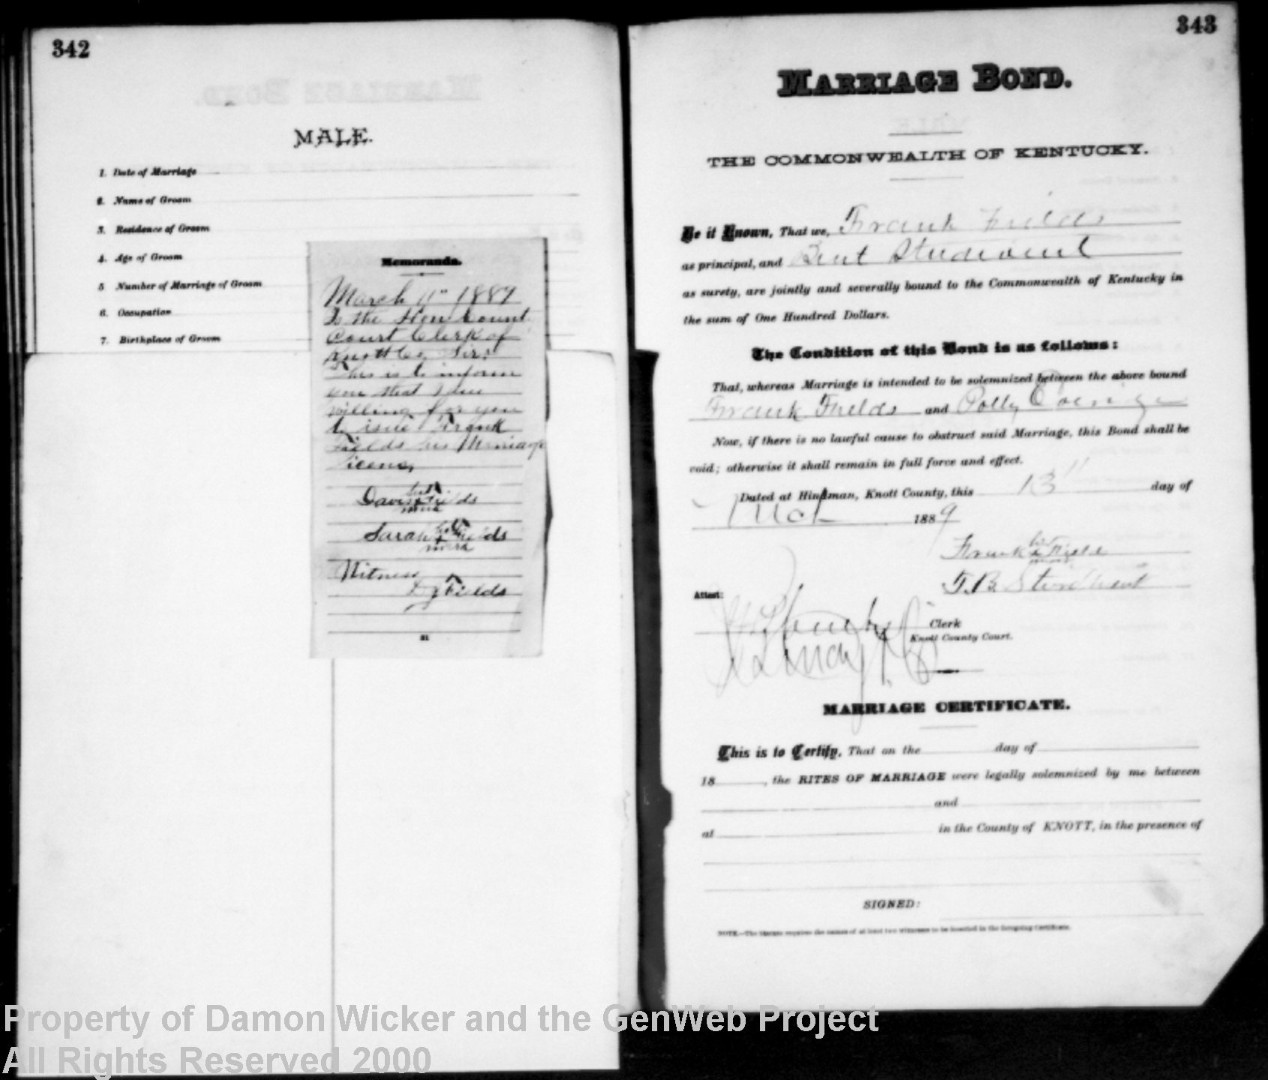 342
MALE.
1. Date of Marriage
2. Name of Groom
3. Residence of Groom
4. Age of Groom
5 Number of Marriage of Groom
6. Occupation
7. Birthplace of Groom
Memoranda.
March 11" 1889
To the Hon Count
Court Clerk of
Knott Co, Sir:
This is to inform
you that I am
willing for you
to issue Frank
Fields his Marriage
licens,
his
Davis x Fields
mark
her
Sarah x Fields
mark
Witness
D J Fields
21
343
MARRIAGE BOND.
THE COMMONWEALTH OF KENTUCKY.
Be it Known, That we, Frank Fields
as principal, and
as surety, are jointly and severally bound to the Commonwealth of Kentucky in
the sum of One Hundred Dollars.
The Condition of this Bond is as follows:
That, whereas Marriage is intended to be solemnized between the above bound
Frank Fields and Polly
Now, if there is no lawful cause to obstruct said Marriage, this Bond shall be
void; otherwise it shall remain in full force and effect.
Dated at Hindman, Knott County, this 13" day of
Mch 1889
his
Frank x Fields
mark
Attest:
Clerk
Knott County Court.
MARRIAGE CERTIFICATE.
This is to Certify, That on the day of
18 , the RITES OF MARRIAGE were legally solemnized by me between
and
at in the County of KNOTT, in the presence of
SIGNED:
NOTE.—The Statute requires the names of at least two witnesses to be inserted in the foregoing Certificate.
Property of Damon Wicker and the GenWeb Project
All Rights Reserved 2000